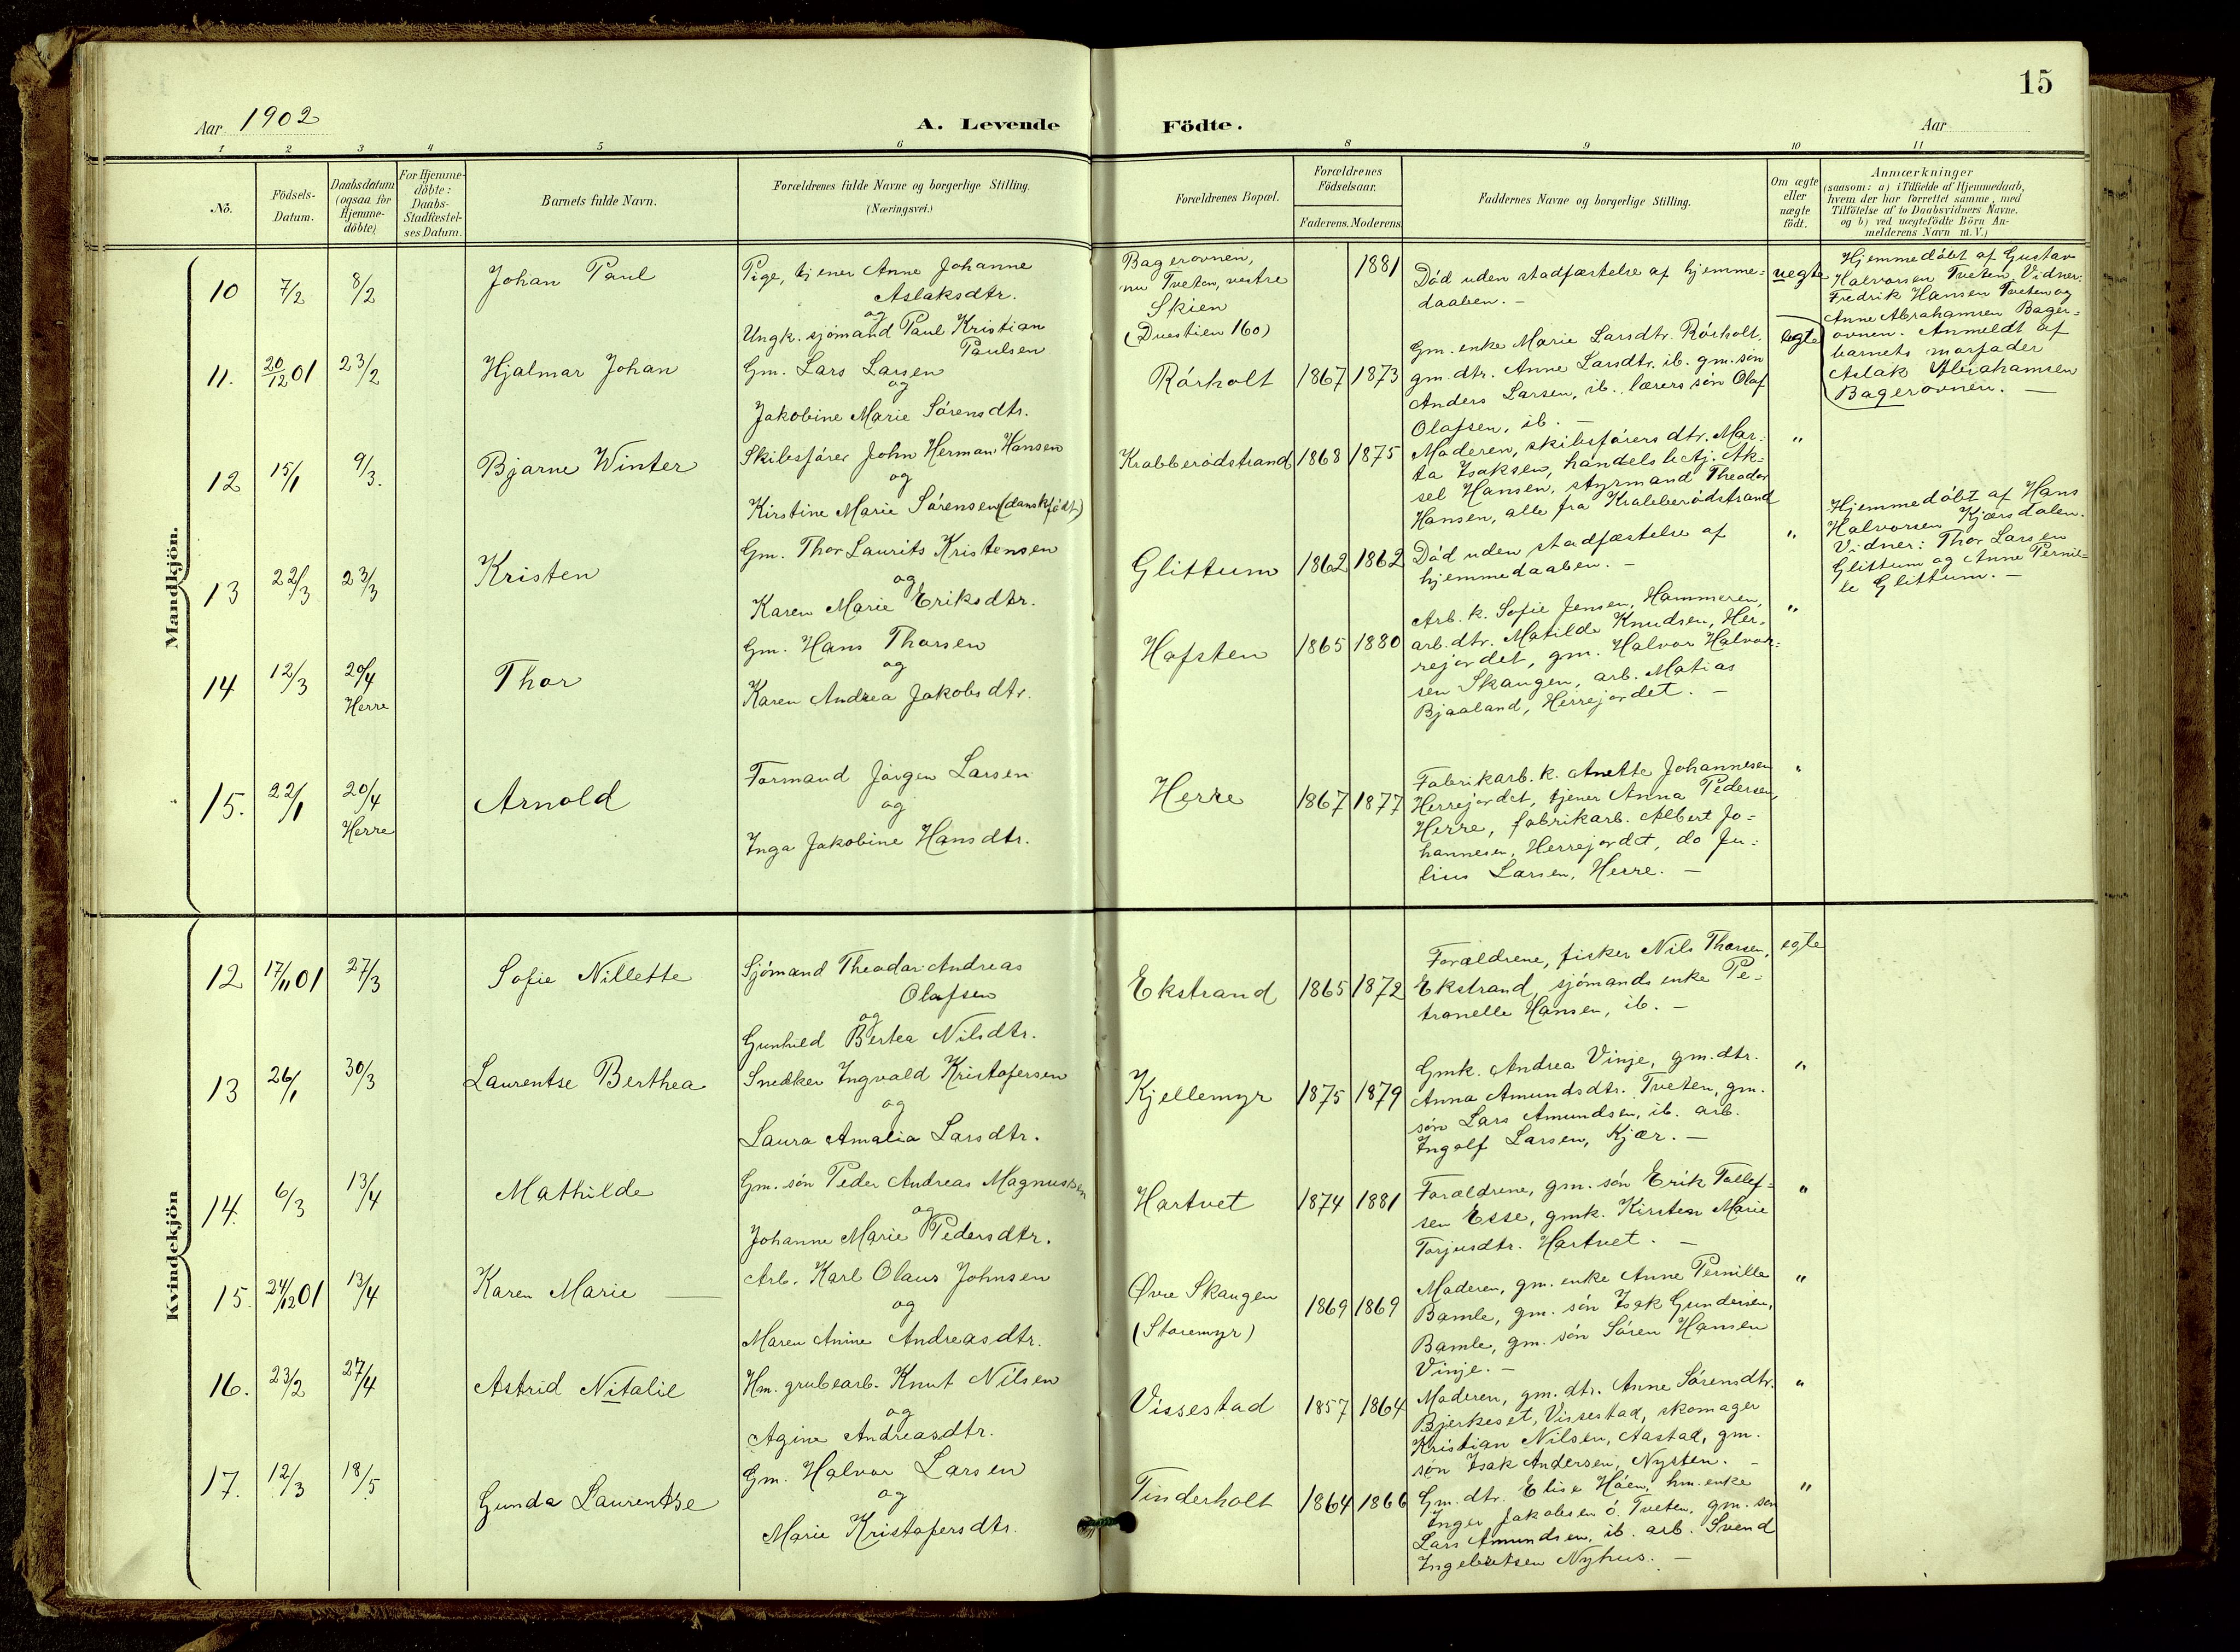 15
Aar 1902
A. Levende Födte.
Aar
1 2 3 4 5 6 8 9 10 11
No.
Födsels-
Datum.
Daabsdatum
(ogsaa for
Hjemme-
döbte)
For Hjemme-
döbte:
Daabs-
Stadfæstel-
ses Datum.
Barnets fulde Navn.
Forældrenes fulde Navne og borgerlige Stilling.
(Næringsvei.)
Forældrenes Bopæl.
Forældrenes
Födselsaar.
Faderens. Moderens.
Faddernes Navne og borgerlige Stilling.
Om ægte
eller
uægte
födt.
Anmærkninger
(saasom: a) i Tilfælde af Hjemmedaab,
hvem der har forrettet samme, med
Tilföielse af to Daabsvidners Navne,
og b) ved uægtefödte Börn An-
melderens Navn m. V.)
Mandkjön.
10 7/2 8/2
Johan Paul
Pige, tjener Anne Johanne
Aslaksdtr.
og
Ungk. sjömand Paul Kristian
Paulsen
Bagerovnen,
nu Tveten, vestre
Skien
(Duestien 160)
1881
Död uden stadfæstelse af hjemme-
daaben. –
uegte
Hjemmedöbt af Gustav
Halvorsen Tveten. Vidner:
Fredrik Hansen Tveten og
Anne Abrahamsen Bager-
ovnen. Anmeldt af
barnets morfader
Aslak Abrahamsen
Bagerovnen. –
11. 20/12 01 23/2
Hjalmar Johan
Gm. Lars Larsen
og
Jakobine Marie Sörensdtr.
Rörholt 1867 1873
Gm. enke Marie Larsdtr. Rörholt,
gm. dtr. Anne Larsdtr. ib. gm. søn
Anders Larsen, ib. lærers søn Olaf
Olafsen, ib. –
egte
12 15/1 9/3.
Bjarne Winter
Skibsförer John Herman Hansen
og
Kirstine Marie Sörensen (danskfödt)
Krabberödstrand 1868 1875
Moderen, skibsförers dtr. Mar-
ta Isaksen, handelsbetj. Ak-
sel Hansen, styrmand Theodor
Hansen, alle fra Krabberödstrand
"
13 22/3 23/3
Kristen
Gm. Thor Laurits Kristensen
og
Karen Marie Eriksdtr.
Glittum 1862 1862
Död uden stadfæstelse af
hjemmedaaben. –
"
Hjemmedöbt af Hans
Halvorsen Kjærsdalen.
Vidner: Thor Larsen
Glittum og Anne Pernil-
le Glittum. –
14 12/3 20/4
Herre
Thor
Gm. Hans Thorsen
og
Karen Andrea Jakobsdtr.
Hafsten 1865 1880
Arb. k. Sofie Jensen, Hammeren,
arb. dtr. Matilde Knudsen, Her-
rejordet, gm. Halvor Halvor-
sen Skaugen, arb. Matias
Bjaaland, Herrejordet. –
"
15. 22/1 20/4
Herre
Arnold
Formand Jörgen Larsen
og
Inga Jakobine Hansdtr.
Herre 1867 1877
Fabrikarb. k. Anette Johannesen
Herrejordet, tjener Anna Pedersen,
Herre, fabrikarb. Albert Jo-
hannesen, Herrejordet, do Ju-
lius Larsen, Herre. –
"
Kvindekjön
12 17/11 01 27/3
Sofie Nillette
Sjömand Theodor Andreas
Olafsen
og
Gunhild Bertea Nilsdtr.
Ekstrand 1865 1872
Forældrene, fisker Nils Thorsen,
Ekstrand, sjömands enke Pe-
tronelle Hansen, ib. –
egte
13 26/1 30/3
Laurentse Berthea
Snedker Ingvald Kristofersen
og
Laura Amalia Larsdtr.
Kjellemyr 1875 1879
Gmk. Andrea Vinje, gm. dtr.
Anna Amundsdtr. Tveten, gm.
søn Lars Amundsen, ib. arb.
Ingolf Larsen, Kjær. –
"
14. 6/3 13/4
Mathilde
Gm. søn Peder Andreas Magnussen
og
Johanne Marie Pedersdtr.
Hartvet 1874 1881
Forældrene, gm. søn Erik Tollef-
sen Esse, gmk. Kirsten Marie
Torjusdtr. Hartvet. –
"
15. 24/12 01 13/4
Karen Marie
Arb. Karl Olaus Johnsen
og
Maren Anine Andreasdtr.
Øvre Skaugen
(Storemyr)
1869 1869
Moderen, gm. enke Anne Pernille
Bamle, gm. søn Isak Gundersen,
Bamle, gm. søn Sören Hansen
Vinje. –
"
16. 23/2 27/4
Astrid Nitalie
Hm. grubearb. Knut Nilsen
og
Agine Andreasdtr.
Vissestad 1857 1864
Moderen, gm. dtr. Anne Sörensdtr.
Bjerkeset, Vissestad, skomager
Kristian Nilsen, Aastad, gm.
søn Isak Andersen, Nysten. –
"
17. 12/3 18/5
Gunda Laurentse
Gm. Halvor Larsen
og
Marie Kristofersdtr.
Tinderholt 1864 1866
Gm. dtr. Elise Håen, hm. enke
Inger Jakobsen ö. Tveten, gm. søn
Lars Amundsen, ib. arb. Svend
Ingebretsen Nyhus. –
"